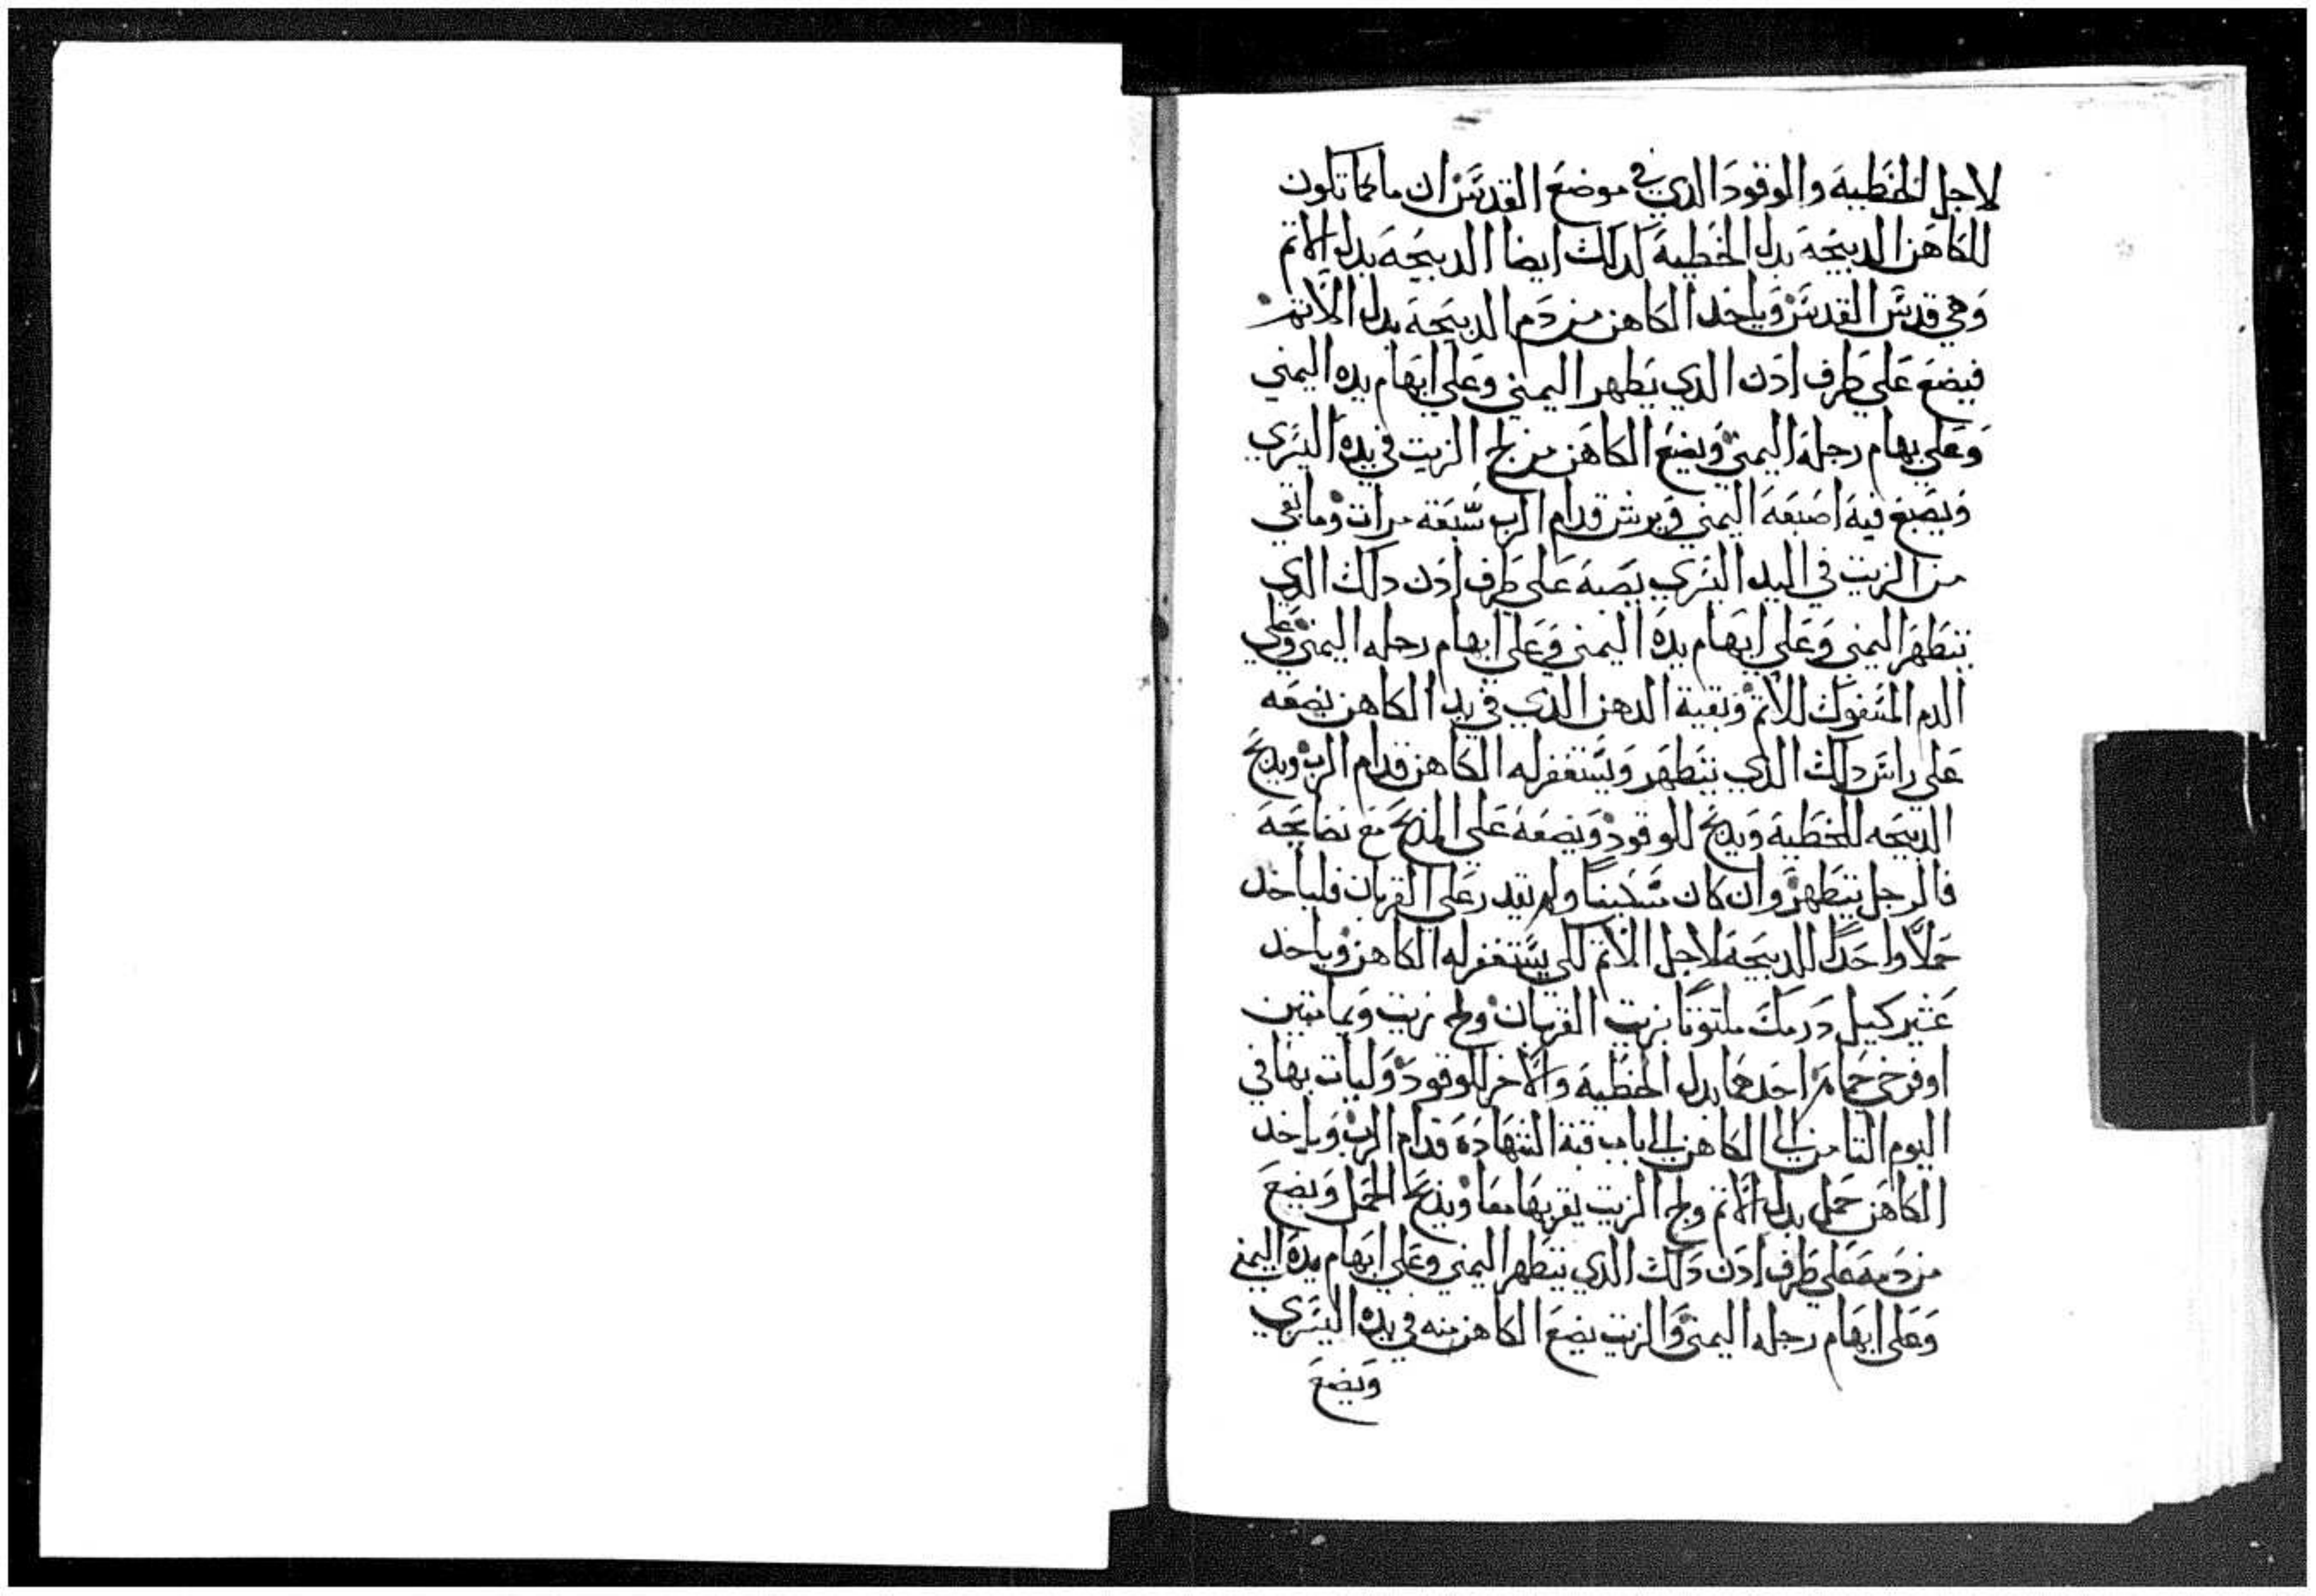 لاجل الخطيه والوقود الدي في موضع القدس ان ما كما تكون
للكاهن الدبيحه بدل الخطيه كدلك ايضا الدبيحه بدل الاتم
وهي قدس القدس وياخد الكاهن من دم الدبيحه بدل الاتم
فيضع علي طرف ادن الدي يطهر اليمني وعلي ابهام يده اليمني
وعلي بهام رجله اليمني ويضع الكاهن من لج الزيت في يده اليسري
ويصبغ فيه اصبعه اليمني ويرش قدام الرب سبعة مرات وما بقي
من الزيت في اليد اليسري يصبه علي طرف ادن دلك الدي
يتطهر اليمني وعلي ابهام يده اليمني وعلي ابهام رجله اليمني وعلي
الدم المسفوك للاتم وبقية الدهن الدي في يد الكاهن يضعه
علي راس دلك الدي يتطهر ويستغفر له الكاهن قدام الرب ويدبح
الدبيحه للخطيه ويدبح للوقود ويضعه علي المدبح مع نضايجه
فالرجل يتطهر وان كان مسكينا ولم يقدر علي القربان فلياخد
حملا واحدا للدبيحه لاجل الاتم لكي يستغفر له الكاهن وياخد
عشر كيل درمك ملتوتا بزيت القربان ولج زيت ويمامتين
او فرخي حمام احدهما بدل الخطيه والاخر للوقود وليات بها في
اليوم التامن الي الكاهن الي باب قبة الشهاده قدام الرب وياخد
الكاهن حمل بدل الاتم ولج الزيت يقربها معا ويدبح الحمل ويضع
من دمه علي طرف ادن دلك الدي يتطهر اليمني وعلي ابهام يده اليمني
وعلي ابهام رجله اليمني والزيت يضع الكاهن منه في يده اليسري
ويضع